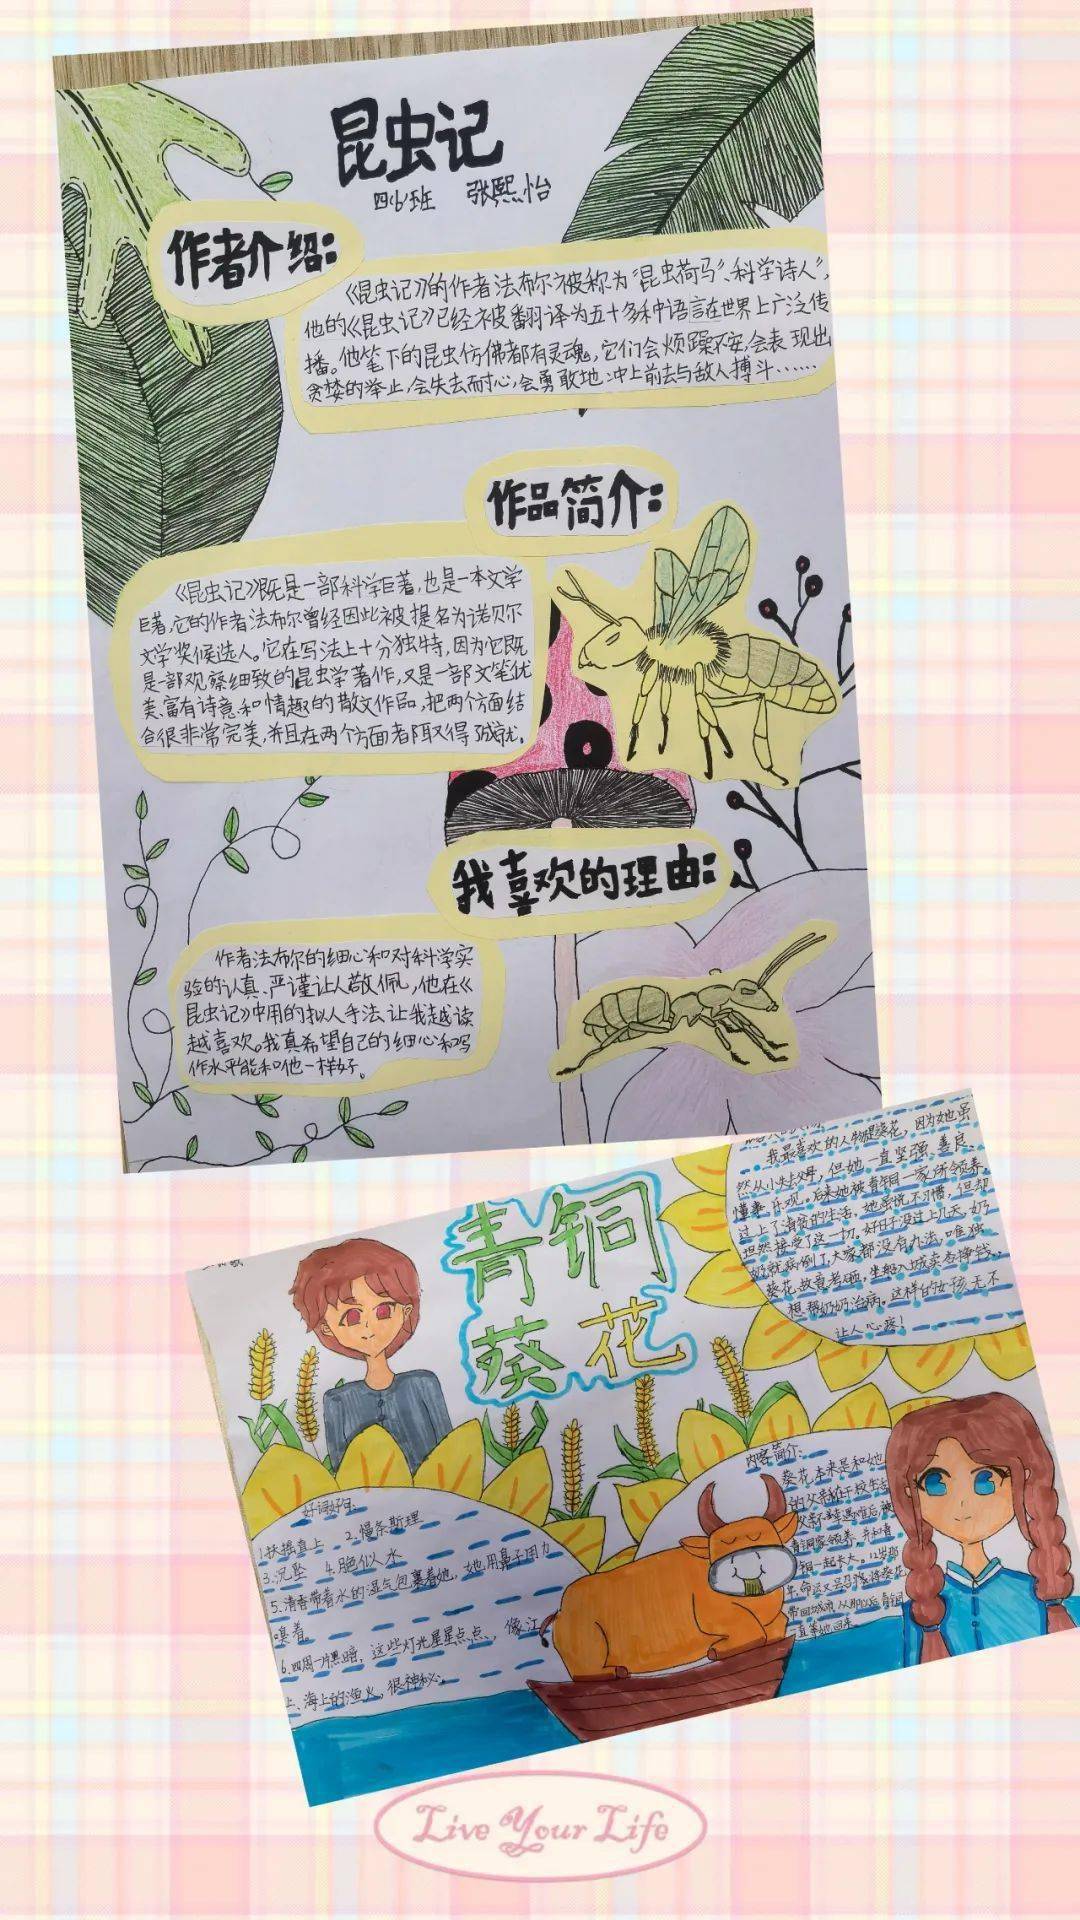 昆虫记
四6班 张熙怡
作者介绍:
《昆虫记》的作者法布尔被称为“昆虫荷马”、“科学诗人”,
他的《昆虫记》已经被翻译为五十多种语言在世界上广泛传
播。他笔下的昆虫仿佛都有灵魂,它们会烦躁不安,会表现出
贪婪的举止,会失去耐心,会勇敢地冲上前去与敌人搏斗……
作品简介:
《昆虫记》既是一部科学巨著,也是一本文学
巨著,它的作者法布尔曾经因此被提名为诺贝尔
文学奖候选人。它在写法上十分独特,因为它既
是一部观察细致的昆虫学著作,又是一部文笔优
美、富有诗意和情趣的散文作品,把两个方面结
合很非常完美,并且在两个方面都取得成就。
我喜欢的理由:
作者法布尔的细心和对科学实
验的认真、严谨让人敬佩,他在《
昆虫记》中用的拟人手法,让我越读
越喜欢。我真希望自己的细心和写
作水平能和他一样好。
青铜
葵花
我最喜欢的人物是葵花,因为她虽
然从小失去父母,但她一直坚强、善良、
懂事、乐观。后来她被青铜一家所领养,
过上了清贫的生活,她虽说不习惯,但却
坦然接受了这一切。好日子没过上几天,奶
奶就病倒了,大家都没有办法,唯独
葵花故意考砸,坐船入城卖杏挣钱,
想帮奶奶治病。这样的女孩,无不
让人心疼!
好词好句:
1.扶摇直上 2.慢条斯理
3.沉坠 4.脆似人水
5.清香带着水的湿气包裹着她,她用鼻子用力
嗅着。
6.四周一片黑暗,这些灯光星星点点,像江
上、海上的渔火,很神秘。
内容简介:
葵花本来是和她
的父亲在干校生活
父亲不幸遇难后,被
青铜家领养,并和青
铜一起长大。12岁那
年,命运又召将葵花
带回城市,从那以后青铜
一直等她回来。
Live Your Life